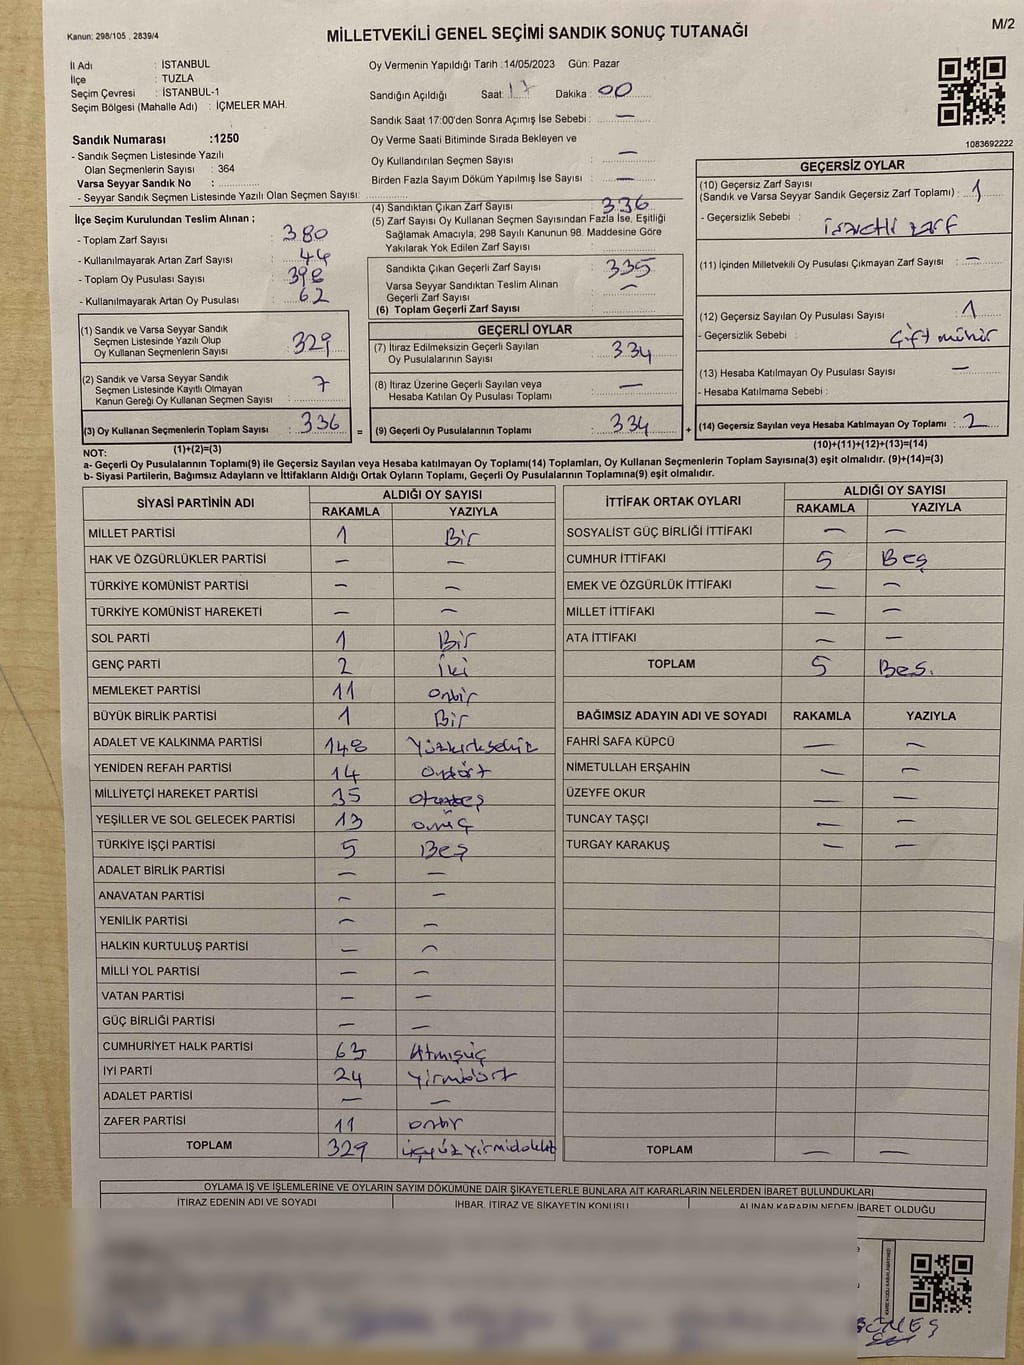 Kanun: 298/105 , 2839/4
MİLLETVEKİLİ GENEL SEÇİMİ SANDIK SONUÇ TUTANAĞI
M/2
İl Adı : İSTANBUL
İlçe : TUZLA
Seçim Çevresi : İSTANBUL-1
Seçim Bölgesi (Mahalle Adı) : İÇMELER MAH.
Sandık Numarası :1250
- Sandık Seçmen Listesinde Yazılı
Olan Seçmenlerin Sayısı : 364
Varsa Seyyar Sandık No :
- Seyyar Sandık Seçmen Listesinde Yazılı Olan Seçmen Sayısı:
İlçe Seçim Kurulundan Teslim Alınan ;
- Toplam Zarf Sayısı : 380
- Kullanılmayarak Artan Zarf Sayısı : 44
- Toplam Oy Pusulası Sayısı : 398
- Kullanılmayarak Artan Oy Pusulası : 62
(1) Sandık ve Varsa Seyyar Sandık
Seçmen Listesinde Yazılı Olup
Oy Kullanan Seçmenlerin Sayısı : 329
(2) Sandık ve Varsa Seyyar Sandık
Seçmen Listesinde Kayıtlı Olmayan
Kanun Gereği Oy Kullanan Seçmen Sayısı : 7
(3) Oy Kullanan Seçmenlerin Toplam Sayısı : 336 =
(1)+(2)=(3)
Oy Vermenin Yapıldığı Tarih :14/05/2023 Gün: Pazar
Sandığın Açıldığı Saat: 17 Dakika : 00
Sandık Saat 17:00'den Sonra Açımış İse Sebebi : —
Oy Verme Saati Bitiminde Sırada Bekleyen ve
Oy Kullandırılan Seçmen Sayısı : —
Birden Fazla Sayım Döküm Yapılmış İse Sayısı : —
(4) Sandıktan Çıkan Zarf Sayısı : 336
(5) Zarf Sayısı Oy Kullanan Seçmen Sayısından Fazla İse, Eşitliği
Sağlamak Amacıyla, 298 Sayılı Kanunun 98. Maddesine Göre
Yakılarak Yok Edilen Zarf Sayısı :
Sandıkta Çıkan Geçerli Zarf Sayısı : 335
Varsa Seyyar Sandıktan Teslim Alınan
Geçerli Zarf Sayısı : —
(6) Toplam Geçerli Zarf Sayısı :
GEÇERLİ OYLAR
(7) İtiraz Edilmeksizin Geçerli Sayılan
Oy Pusulalarının Sayısı : 334
(8) İtiraz Üzerine Geçerli Sayılan veya
Hesaba Katılan Oy Pusulası Toplamı : —
(9) Geçerli Oy Pusulalarının Toplamı : 334 +
1083692222
GEÇERSİZ OYLAR
(10) Geçersiz Zarf Sayısı
(Sandık ve Varsa Seyyar Sandık Geçersiz Zarf Toplamı) : 1
- Geçersizlik Sebebi : işaretli zarf
(11) İçinden Milletvekili Oy Pusulası Çıkmayan Zarf Sayısı : —
(12) Geçersiz Sayılan Oy Pusulası Sayısı : 1
- Geçersizlik Sebebi : Çift mühür
(13) Hesaba Katılmayan Oy Pusulası Sayısı : —
- Hesaba Katılmama Sebebi :
(14) Geçersiz Sayılan veya Hesaba Katılmayan Oy Toplamı : 2
(10)+(11)+(12)+(13)=(14)
NOT:
a- Geçerli Oy Pusulalarının Toplamı(9) ile Geçersiz Sayılan veya Hesaba katılmayan Oy Toplamı(14) Toplamları, Oy Kullanan Seçmenlerin Toplam Sayısına(3) eşit olmalıdır. (9)+(14)=(3)
b- Siyasi Partilerin, Bağımsız Adayların ve İttifakların Aldığı Ortak Oyların Toplamı, Geçerli Oy Pusulalarının Toplamına(9) eşit olmalıdır.
SİYASİ PARTİNİN ADI ALDIĞI OY SAYISI
RAKAMLA YAZIYLA
MİLLET PARTİSİ 1 Bir
HAK VE ÖZGÜRLÜKLER PARTİSİ — —
TÜRKİYE KOMÜNİST PARTİSİ — —
TÜRKİYE KOMÜNİST HAREKETİ — —
SOL PARTİ 1 Bir
GENÇ PARTİ 2 İki
MEMLEKET PARTİSİ 11 onbir
BÜYÜK BİRLİK PARTİSİ 1 Bir
ADALET VE KALKINMA PARTİSİ 148 Yüzkırksekiz
YENİDEN REFAH PARTİSİ 14 Ondört
MİLLİYETÇİ HAREKET PARTİSİ 35 otuzbeş
YEŞİLLER VE SOL GELECEK PARTİSİ 13 onüç
TÜRKİYE İŞÇİ PARTİSİ 5 Beş
ADALET BİRLİK PARTİSİ — —
ANAVATAN PARTİSİ — —
YENİLİK PARTİSİ — —
HALKIN KURTULUŞ PARTİSİ — —
MİLLİ YOL PARTİSİ — —
VATAN PARTİSİ — —
GÜÇ BİRLİĞİ PARTİSİ — —
CUMHURİYET HALK PARTİSİ 63 Atmışüç
İYİ PARTİ 24 Yirmidört
ADALET PARTİSİ — —
ZAFER PARTİSİ 11 onbir
TOPLAM 329 üçyüzyirmidokuz
İTTİFAK ORTAK OYLARI ALDIĞI OY SAYISI
RAKAMLA YAZIYLA
SOSYALİST GÜÇ BİRLİĞİ İTTİFAKI — —
CUMHUR İTTİFAKI 5 Beş
EMEK VE ÖZGÜRLÜK İTTİFAKI — —
MİLLET İTTİFAKI — —
ATA İTTİFAKI — —
TOPLAM 5 Beş.
BAĞIMSIZ ADAYIN ADI VE SOYADI RAKAMLA YAZIYLA
FAHRİ SAFA KÜPCÜ — —
NİMETULLAH ERŞAHİN — —
ÜZEYFE OKUR — —
TUNCAY TAŞÇI — —
TURGAY KARAKUŞ — —
TOPLAM — —
OYLAMA İŞ VE İŞLEMLERİNE VE OYLARIN SAYIM DÖKÜMÜNE DAİR ŞİKAYETLERLE BUNLARA AİT KARARLARIN NELERDEN İBARET BULUNDUKLARI
İTİRAZ EDENİN ADI VE SOYADI İHBAR, İTİRAZ VE ŞİKAYETİN KONUSU ALINAN KARARIN NEDEN İBARET OLDUĞU